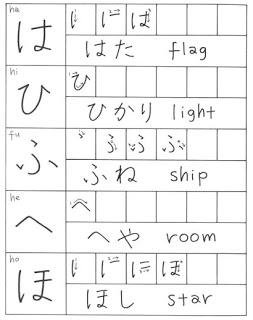 ha
は
はた flag
hi
ひ
ひ
ひかり light
fu
ふ
ふね ship
he
へ
へ
へや room
ho
ほ
ほし star